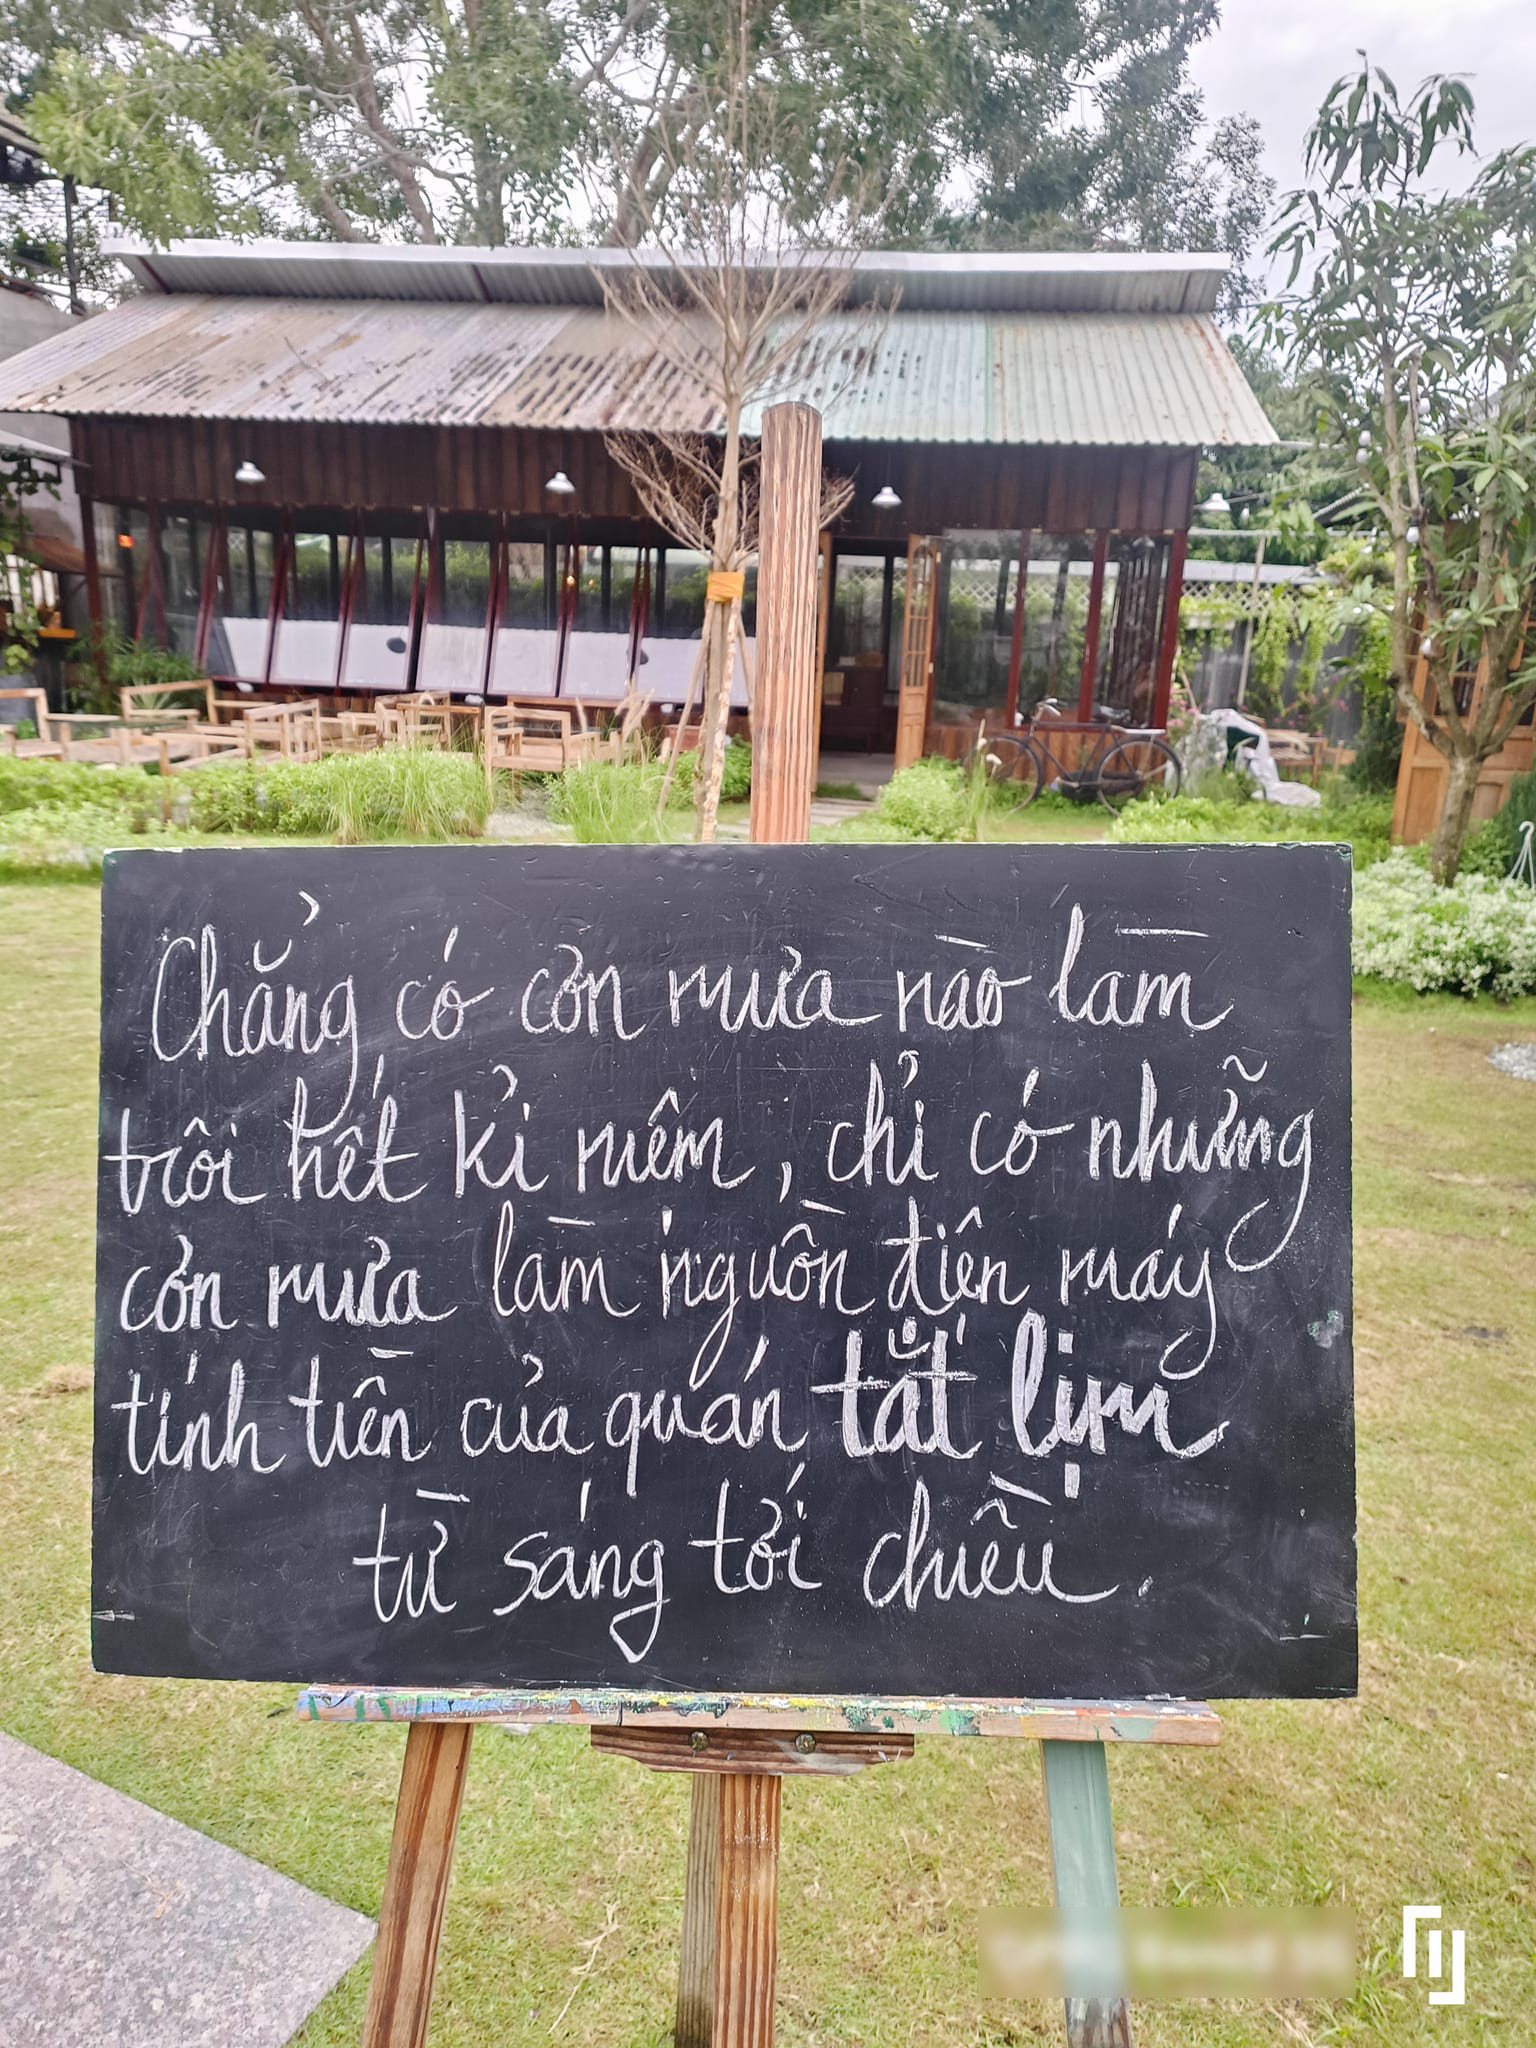 Chẳng có cơn mưa nào làm
trôi hết kỉ niệm, chỉ có những
cơn mưa làm nguồn điện máy
tính tiền của quán tắt lịm
từ sáng tới chiều.